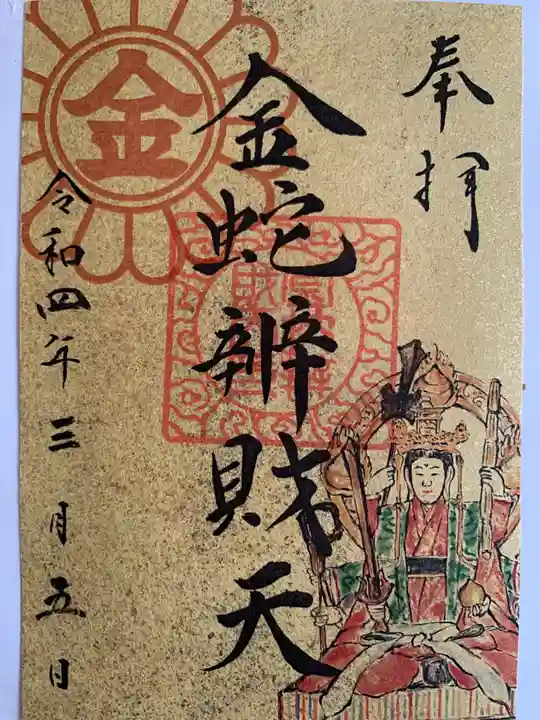 奉拝
金蛇辨財天
金
令和四年三月五日